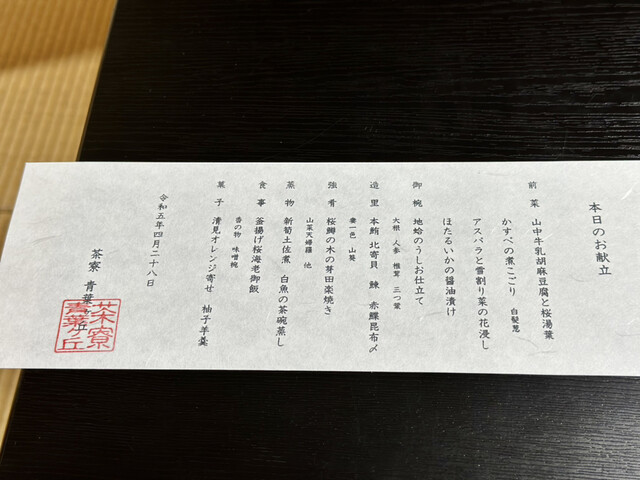 本日のお献立
前菜 山中牛乳胡麻豆腐と桜湯葉
かすべの煮こごり 白髪葱
アスパラと雪割り菜の花浸し
ほたるいかの醤油漬け
御椀 地蛤のうしお仕立て
大根 人参 椎茸 三つ葉
造里 本鮪 北寄貝 鰊 赤鰈昆布〆
妻一色 山葵
強肴 桜鱒の木の芽田楽焼き
山菜天婦羅 他
蒸物 新筍土佐煮 白魚の茶碗蒸し
食事 釜揚げ桜海老御飯
香の物 味噌椀
菓子 清見オレンジ寄せ 柚子羊羹
令和五年四月二十八日
茶寮 青葉ヶ丘
茶寮
青葉ヶ丘